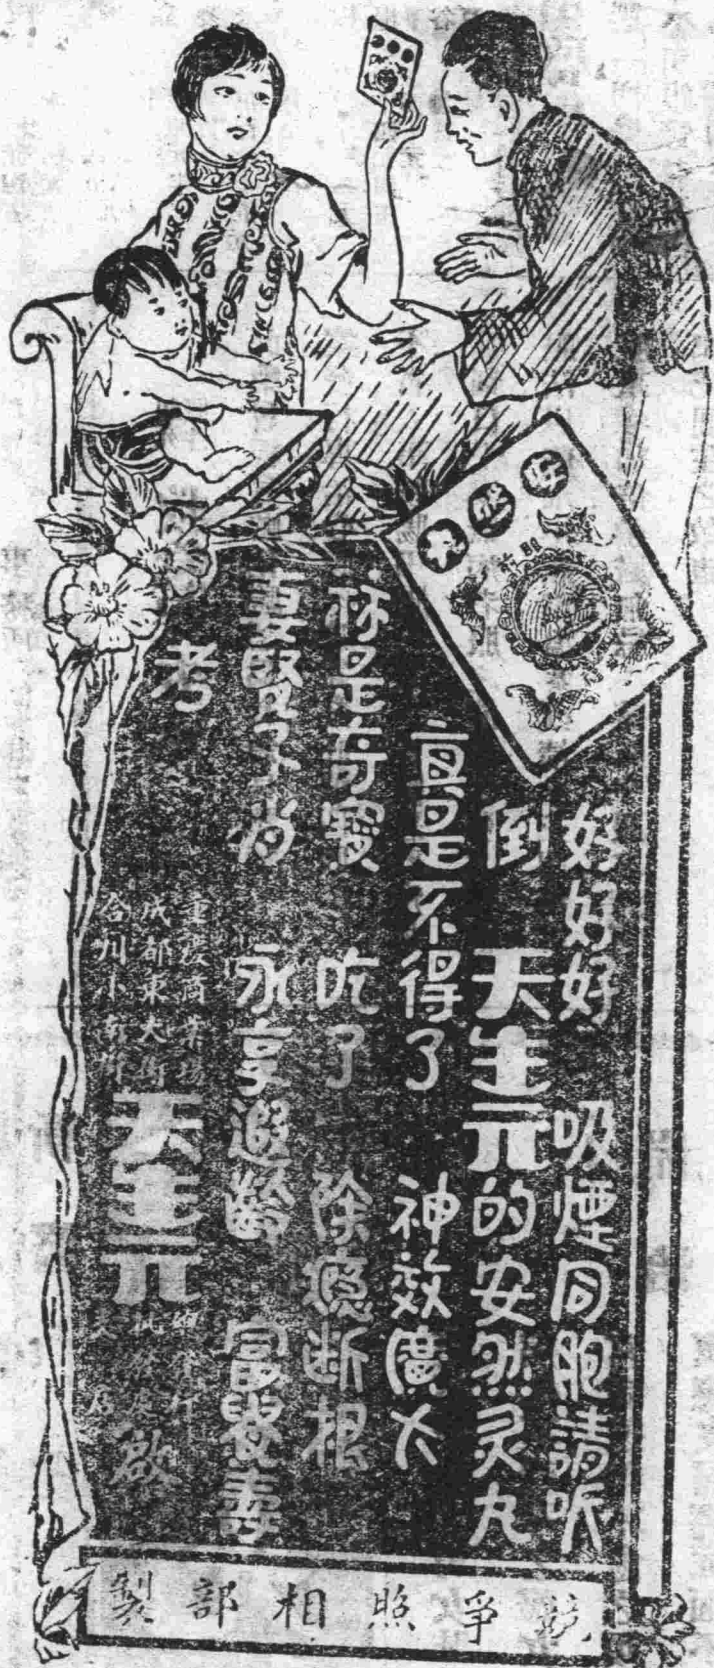 好好好 吸煙同胞請听
倒 天生元的安然灵丸
真是不得了 神效廣大
称是奇寶 吃了 除癮断根
妻賢子肖 永享遐齡 富貴壽
考
重慶商業場
成都東大街
合州小南街
天生元
批發處
啟
競爭照相部製